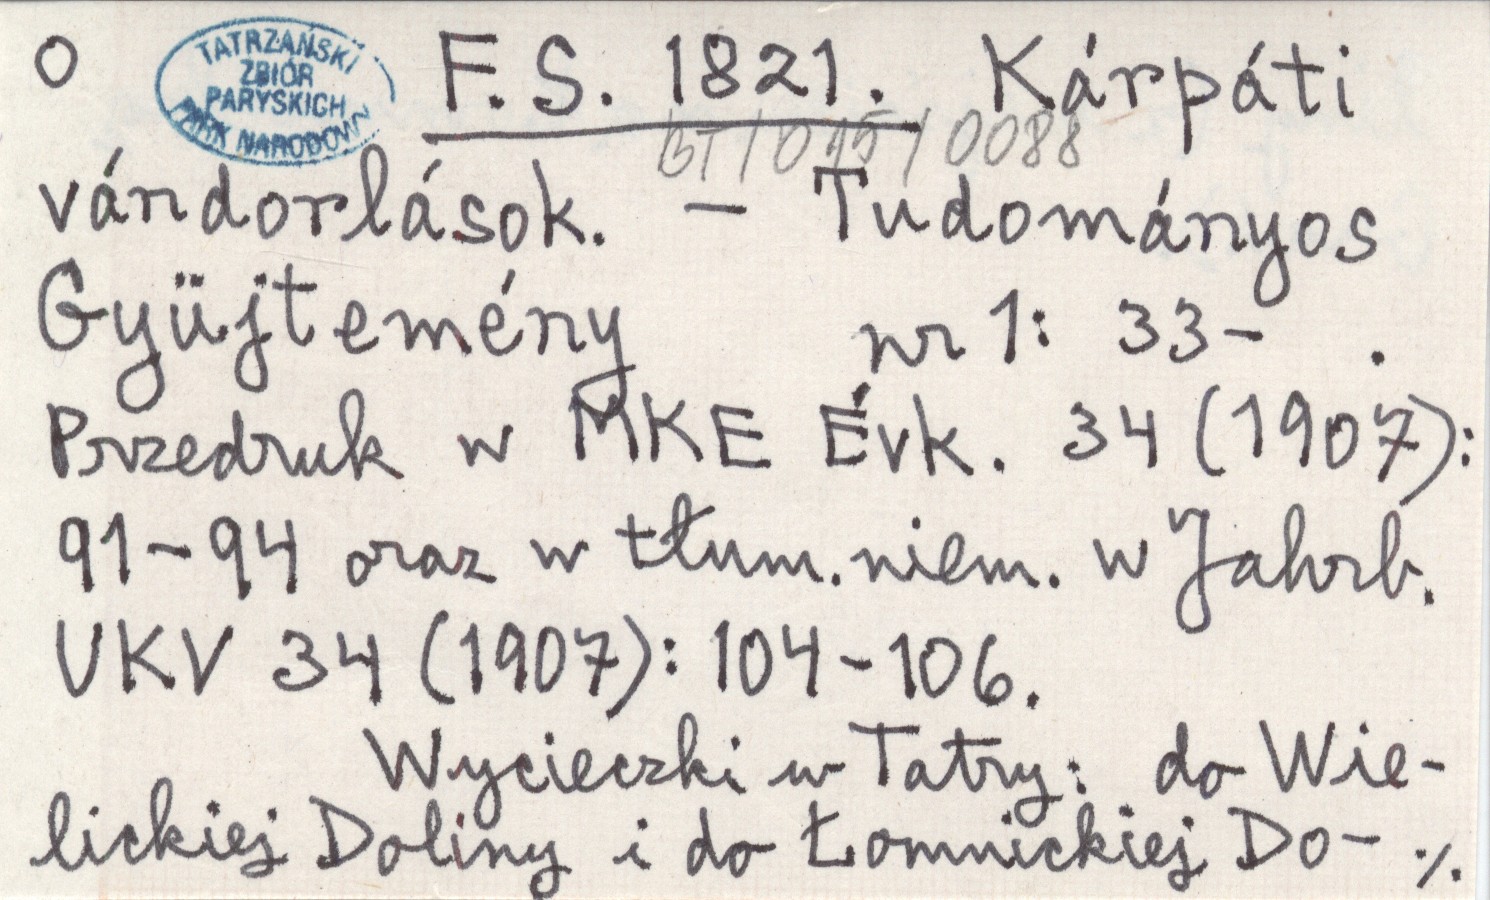 O F.S. 1821. Kárpáti
TATRZAŃSKI
ZBIÓR
PARYSKICH
PARK NARODOWY
BT/015/0088
vándorlások. – Tudományos
Gyüjtemény nr 1: 33– .
Przedruk w MKE Évk. 34 (1907):
91–94 oraz w tłum. niem. w Jahrb.
UKV 34 (1907): 104–106.
Wycieczki w Tatry: do Wie-
lickiej Doliny i do Łomnickiej Do- ./.